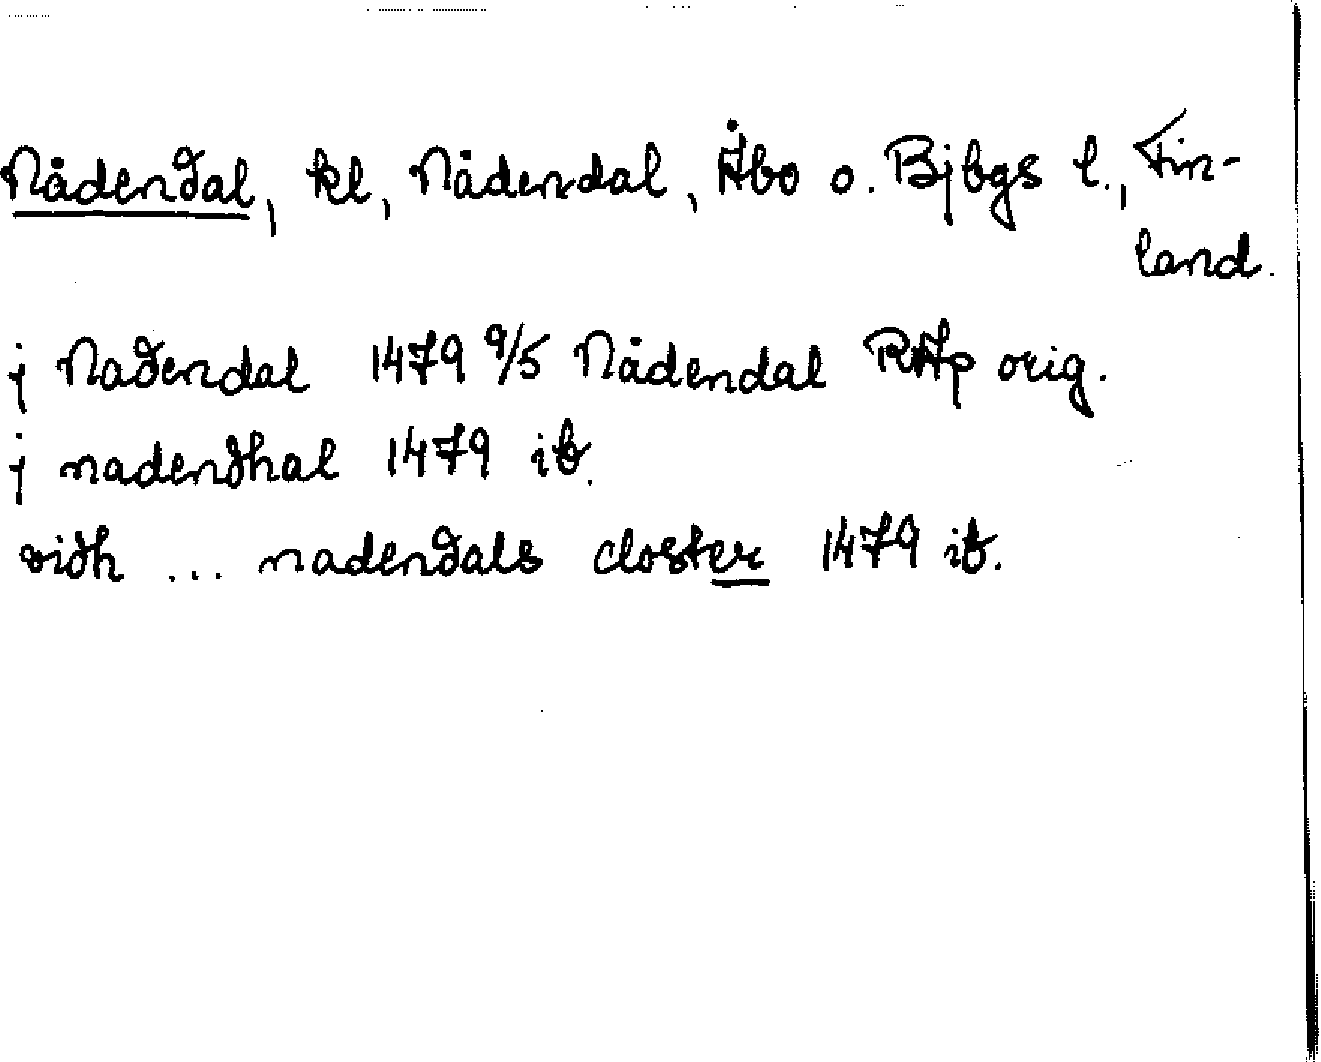 Nådendal, kl, Nådendal, Åbo o. Bjbgs l., Fin-
land.
j Nadendal 1479 9/5 Nådendal RAp orig.
j nadendhal 1479 ib.
vidh ... nadendals closter 1479 ib.